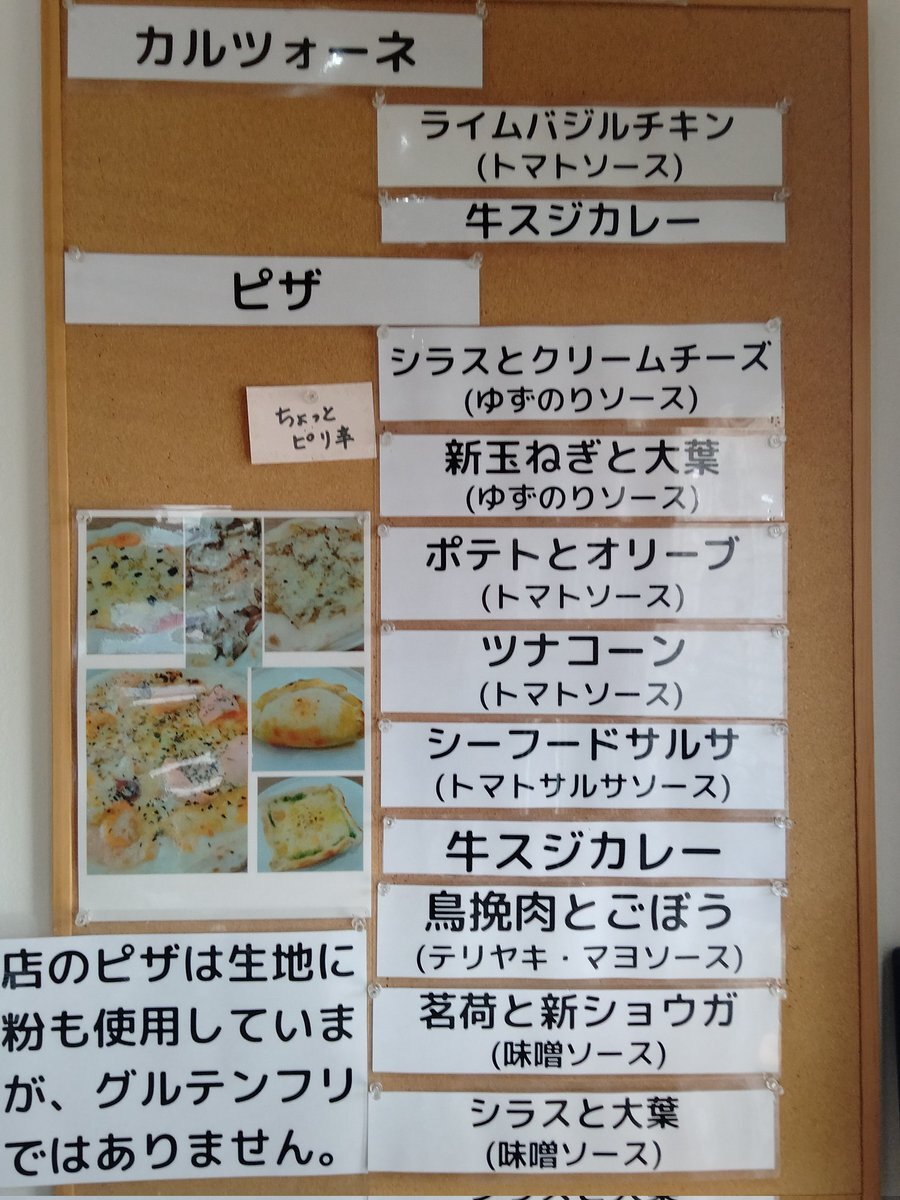 カルツォーネ
ライムバジルチキン
(トマトソース)
牛スジカレー
ピザ
シラスとクリームチーズ
(ゆずのりソース)
ちょっと
ピリ辛
新玉ねぎと大葉
(ゆずのりソース)
ポテトとオリーブ
(トマトソース)
ツナコーン
(トマトソース)
シーフードサルサ
(トマトサルサソース)
牛スジカレー
鳥挽肉とごぼう
(テリヤキ・マヨソース)
茗荷と新ショウガ
(味噌ソース)
シラスと大葉
(味噌ソース)
店のピザは生地に
粉も使用していま
が、グルテンフリ
ではありません。